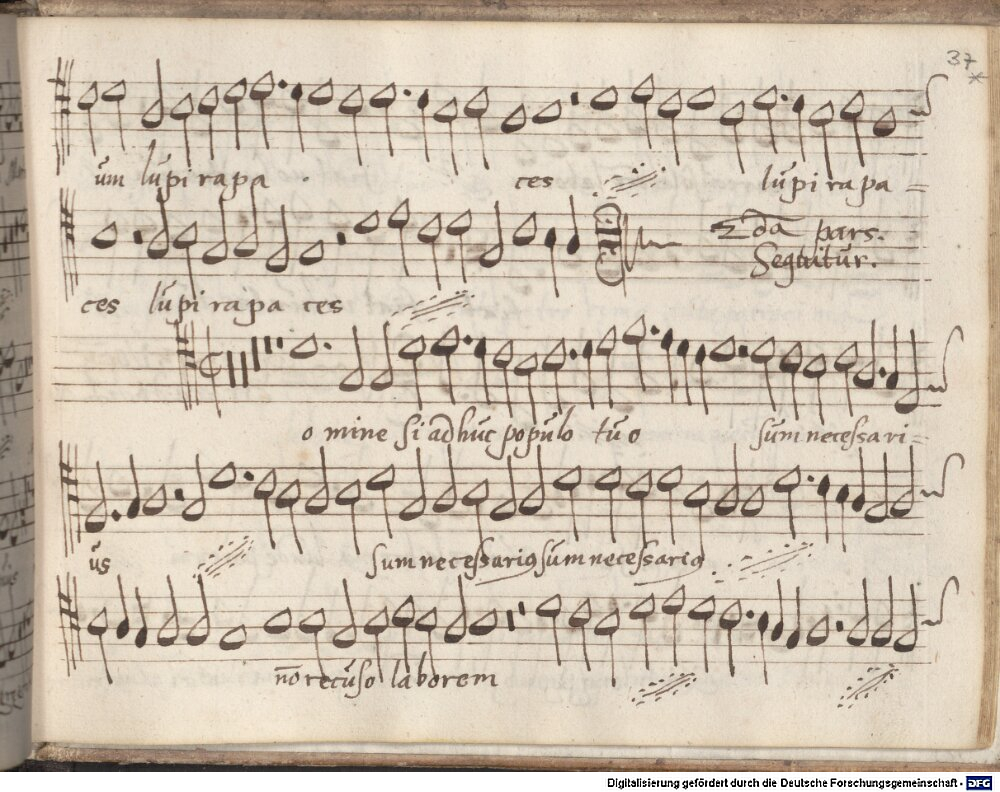 37
um lupi rapa ces lupi rapa =
2da pars.
Sequitur.
ces lupi rapa ces
omine si adhuc populo tuo sum necessari =
us sum necessarius sum necessarius
nō recuso laborem
Digitalisierung gefördert durch die Deutsche Forschungsgemeinschaft - DFG